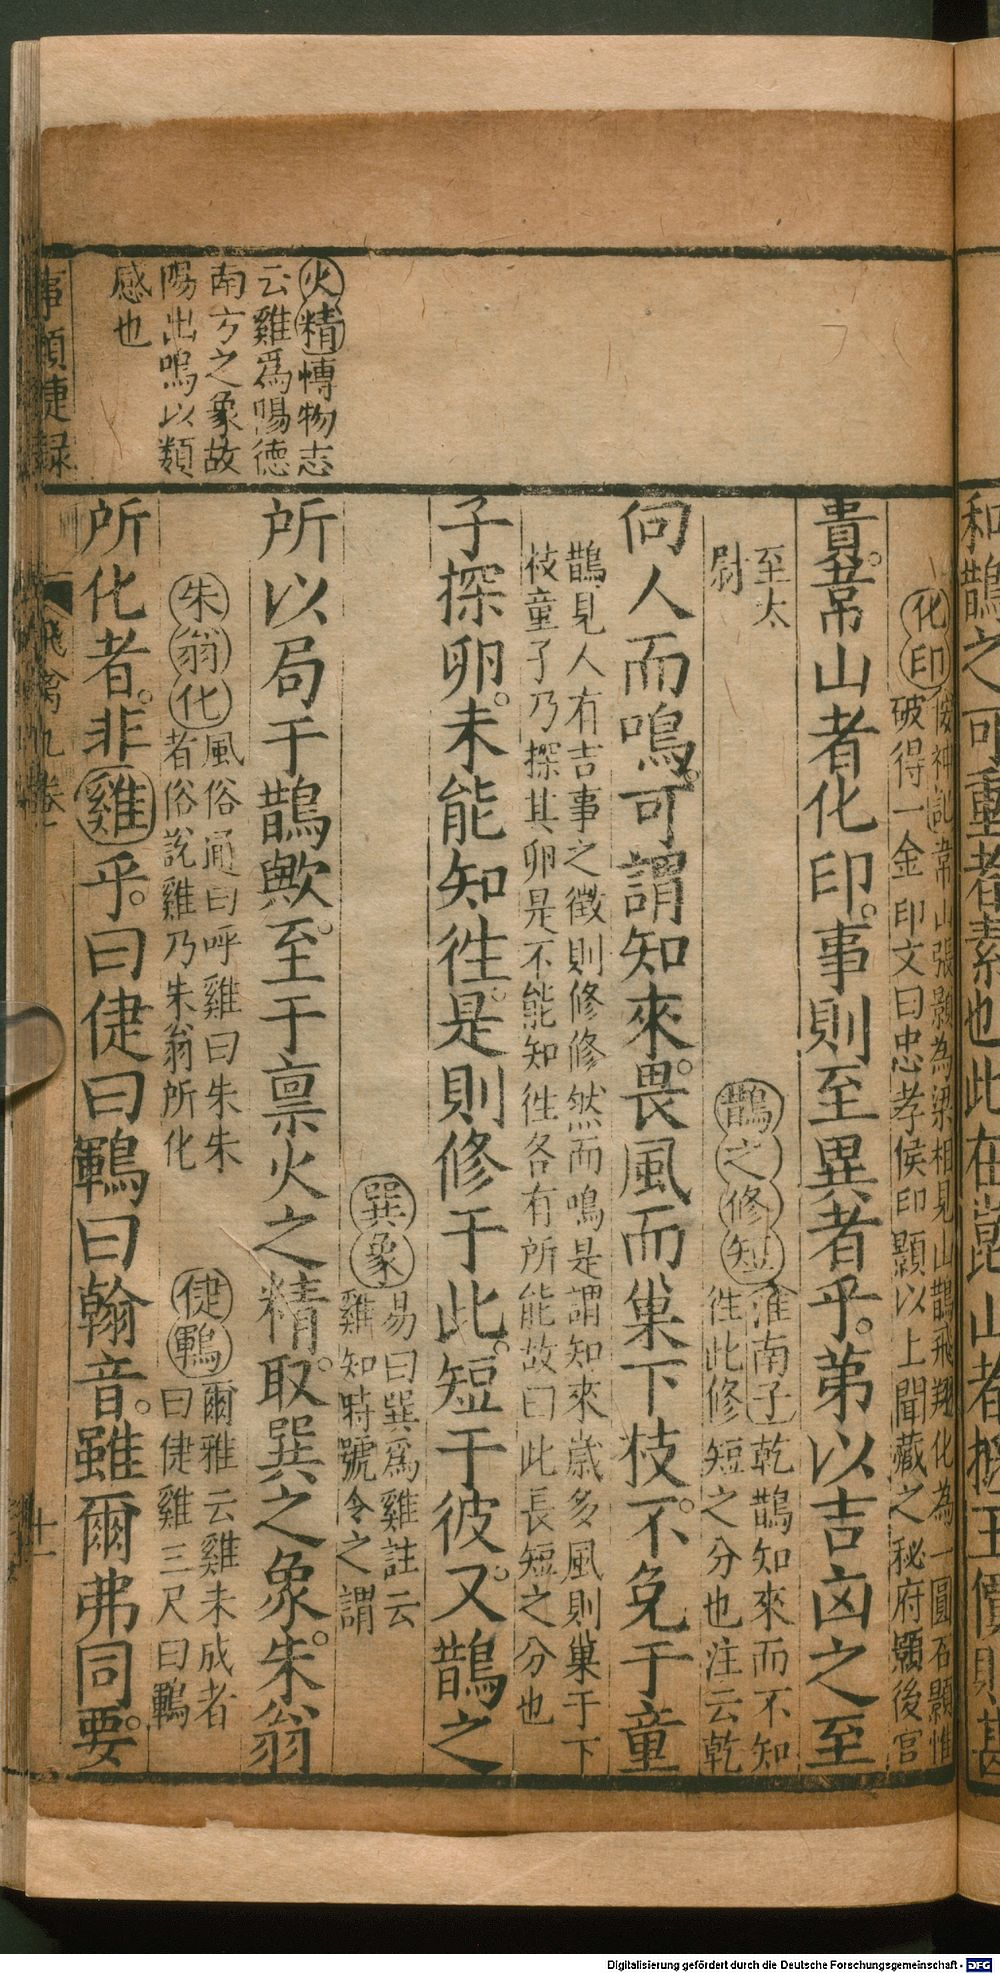 火精博物志
云雞爲陽德
南方之象故
陽出鳴以類
感也
和鵲之可重者素也此在
化印
侫神記常山張顥為梁相見山鵲飛翔化為一圓石顥惟
破得一金印文曰忠孝侯印顥以上聞藏之秘府顥後官
貴常山者化印事則至異者乎弟以吉凶之至
至太
尉
鵲之修短
淮南子乾鵲知來而不知
徃此修短之分也注云乾
向人而鳴可謂知來畏風而巢下枝不免于童
鵲見人有吉事之徵則修修然而鳴是謂知來歳多風則巢于下
枝童子乃探其卵是不能知徃各有所能故曰此長短之分也
子探卵未能知徃是則修于此短于彼又鵲之
巽象
易曰巽爲雞註云
雞知時號令之謂
所以局于鵲歟至于禀火之精取巽之象朱翁
朱翁化
風俗通曰呼雞曰朱朱
者俗説雞乃朱翁所化
倢鶤
爾雅云雞未成者
曰倢雞三尺曰鶤
所化者非雞乎曰倢曰鶤曰翰音雖爾弗同要
事類捷録
飛禽九卷
十一
Digitalisierung gefördert durch die Deutsche Forschungsgemeinschaft - DFG